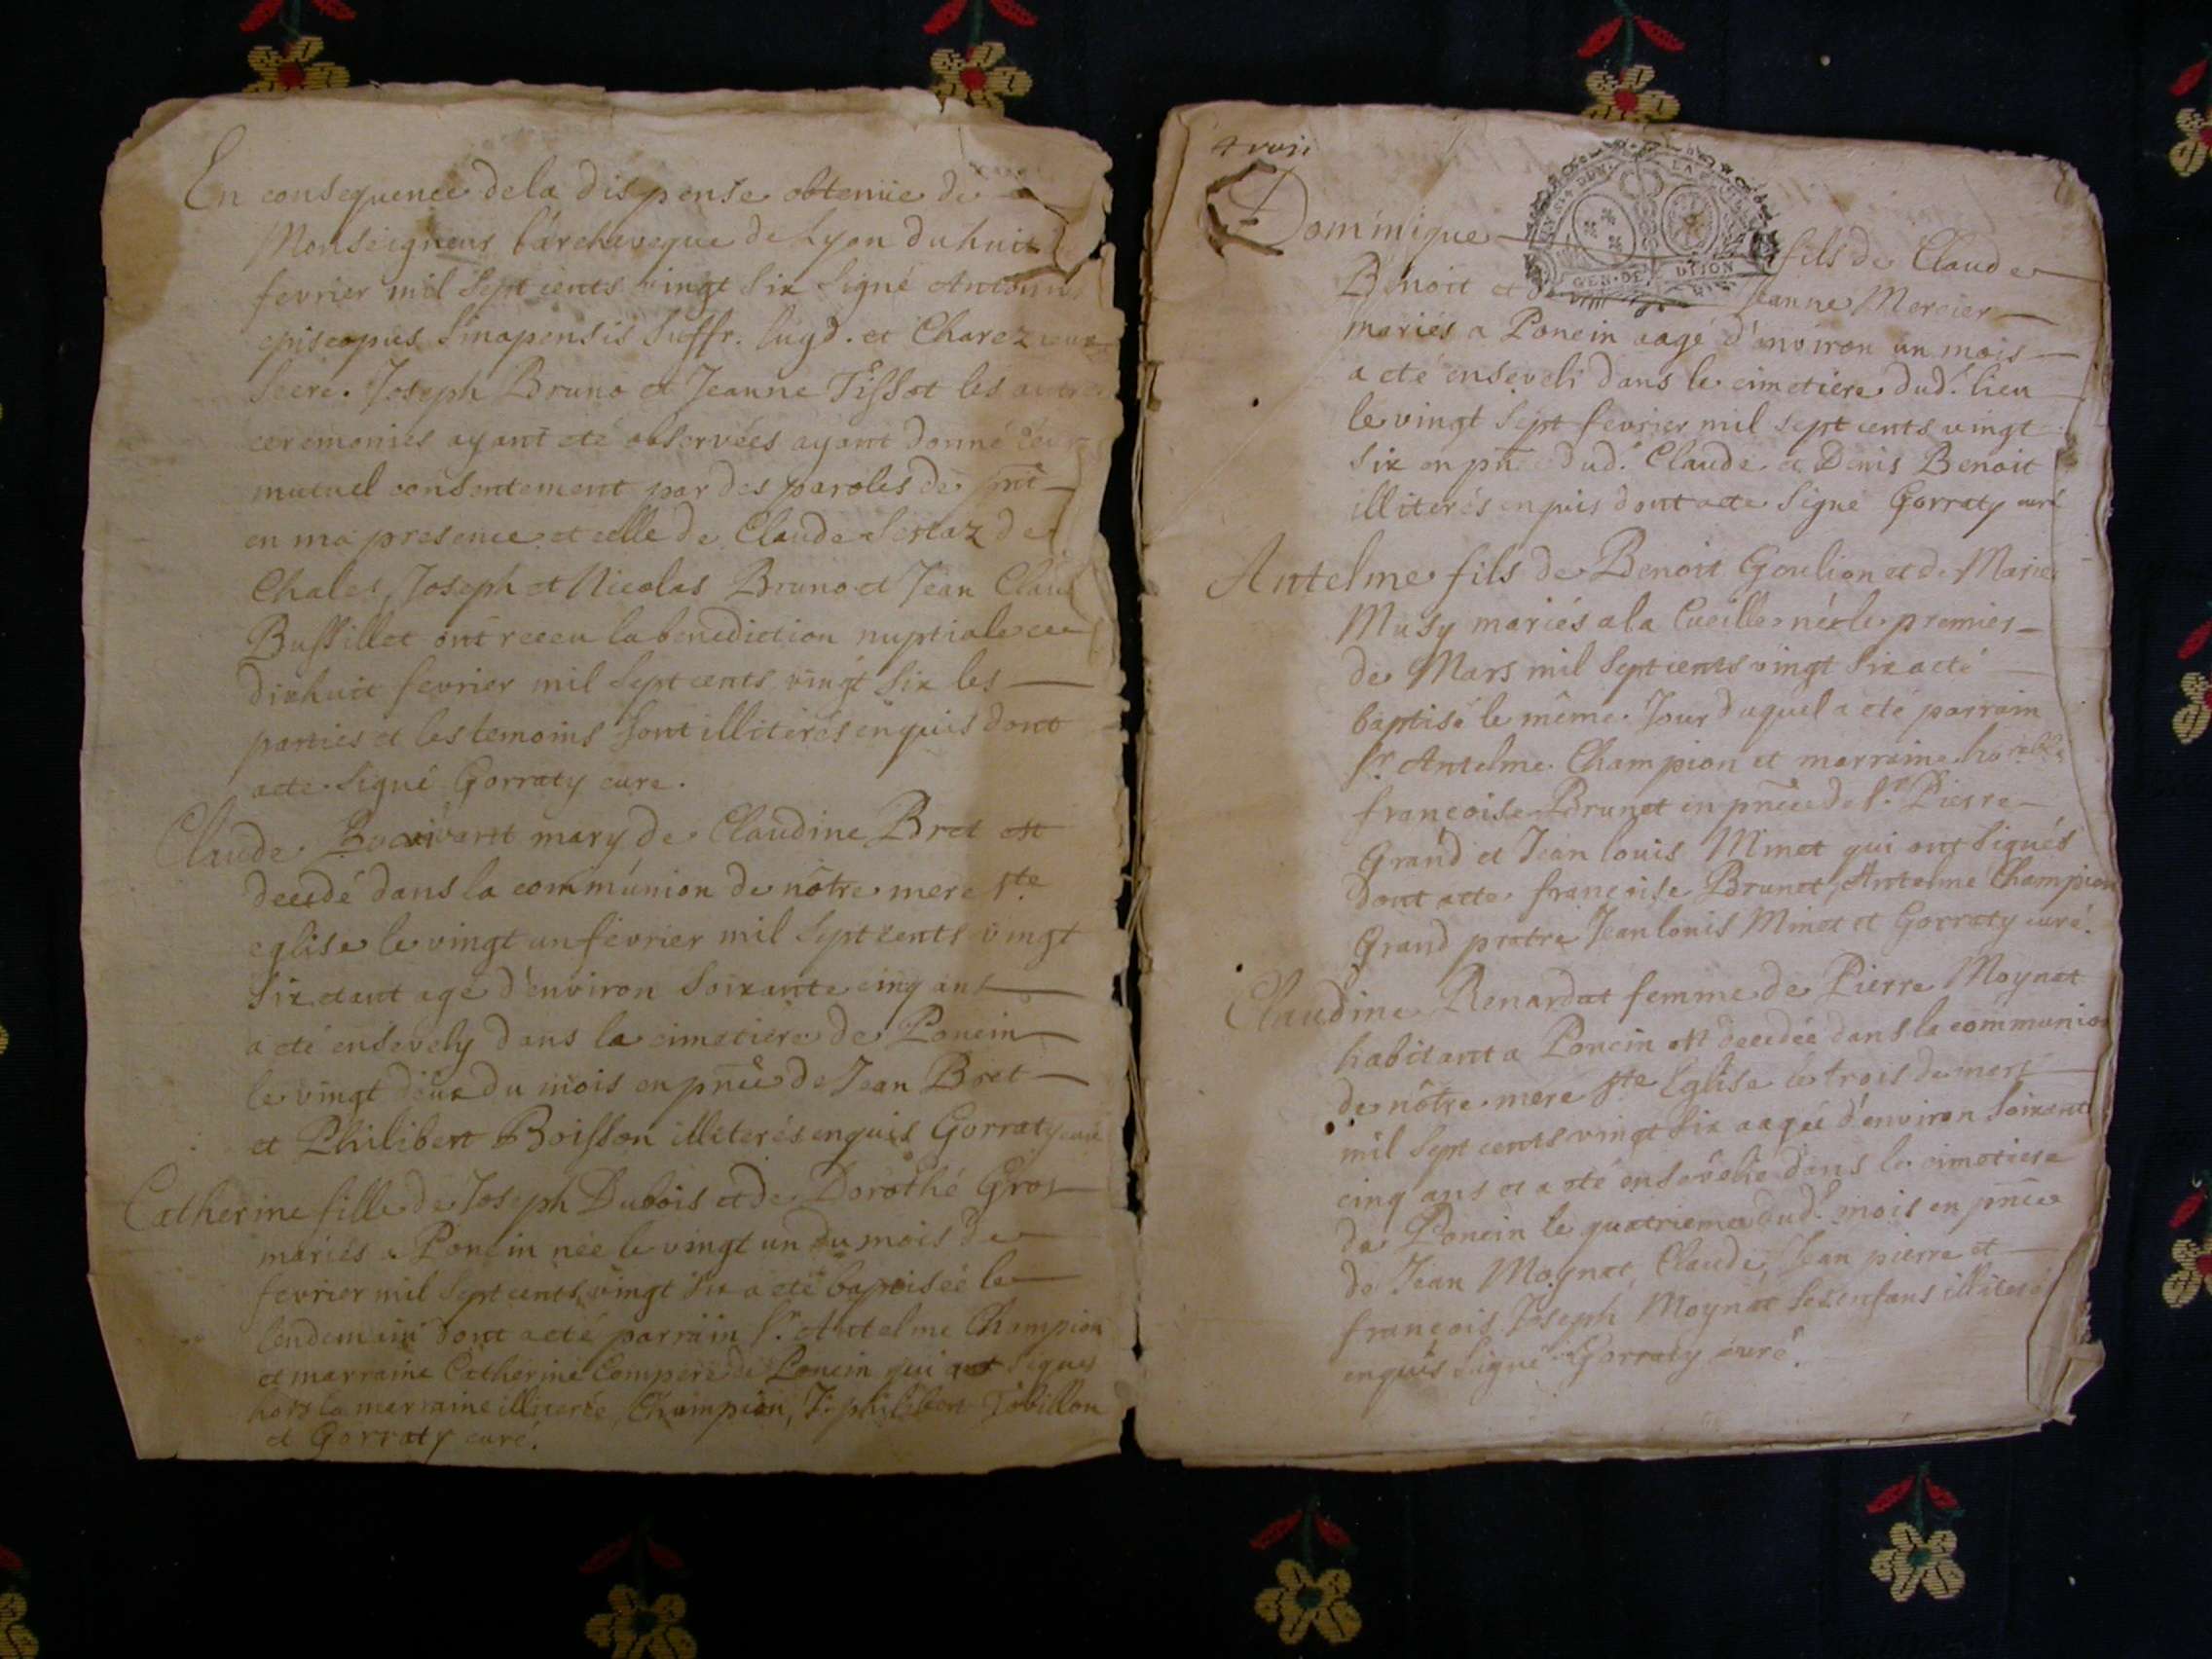 En consequence de la dispense obtenüe de
Monseigneur l'archeveque de Lyon du huit
fevrier mil sept cents vingt six signé Antonius
episcopus Sinopensis suffr. lugd. et Charezieux
secre. Joseph Bruno et Jeanne Tissot les autres
ceremonies ayant eté observées ayant donné leur
mutuel consentement par des paroles de pnt
en ma presence et celle de Claude de
Chales, Joseph et Nicolas Bruno et Jean Claude
Bussillet ont receu la benediction nuptiale ce
dixhuit fevrier mil sept cents vingt six les
parties et les temoins sont illiterés enquis dont
acte signé Gorraty curé.
Claude vivant mary de Claudine Bret est
decedé dans la communion de nôtre mere ste
eglise le vingt un fevrier mil sept cents vingt
six etant agé d'environ soixante cinq ans
a eté ensevely dans le cimetiere de Poncin
le vingt deux du mois en pnce de Jean Bret
et Philibert Boisson illiterés enquis Gorraty curé
Catherine fille de Joseph Dubois et de Dorothé Gros
mariés a Poncin née le vingt un du mois de
fevrier mil sept cents vingt six a eté baptisée le
lendemain dont a eté parrain sr. Antelme Champion
et marraine Catherine Compere de Poncin qui ont signés
hors la marraine illiterée Champion, J. philibert Tobillon
et Gorraty curé.
Dominique fils de Claude
Benoit et de Jeanne Mercier
mariés a Poncin aagé d'environ un mois
a eté enseveli dans le cimetiere dud. lieu
le vingt sept fevrier mil sept cents vingt
six en pnce dud. Claude et Denis Benoit
illiterés enquis dont acte signé Gorraty curé
Antelme fils de Benoit Goulion et de Marie
Musy mariés a la Cueille né le premier
de Mars mil sept cents vingt six a eté
baptisé le même jour duquel a eté parrain
sr. Antelme Champion et marraine honble
francoise Brunet en pnce de sr. Pierre
Grand et Jean louis Minet qui ont signés
dont acte francoise Brunet, Antelme Champion
Grand pretre Jean louis Minet et Gorraty curé.
Claudine Renardat femme de Pierre Moynat
habitant a Poncin est decedée dans la communion
de nôtre mere ste Eglise le trois de mars
mil sept cents vingt six aagée d'environ soixante
cinq ans et a eté ensevelie dans le cimetiere
de Poncin le quatrieme dud. mois en pnce
de Jean Moynat, Claude, Jean pierre et
francois Joseph Moynat ses enfans illiterés
enquis signé Gorraty curé.
GEN. DE DIJON